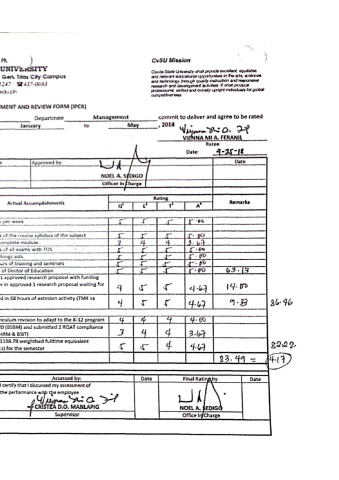 PR
CvSU Mission
UNIVERSITY
Gen. Trias City Campus
☎437-0693
edu.ph
Cavite State University shall provide excellent, equitable
and relevant educational opportunities in the arts, sciences
and technology through quality instruction and responsive
research and development activities. It shall produce
professional, skilled and morally upright individuals for global
competitiveness.
MENT AND REVIEW FORM (IPCR)
Departmen Management commit to deliver and agree to be rated
January to May , 2018
VIENNA MI A. FERANIL
Ratee
Date: 9-25-18
Approved by: Date
NOEL A. SEDIGO
Officer in Charge
Actual Accomplishments Rating Remarks
Q¹ E² T³ A⁴
per week 5 5 5 5.00
of the course syllabus of the subject 5 5 5 5.00
complete module 3 4 4 3.67
of all exams with TOS 5 5 5 5.00
things aids 5 5 5 5.00
urs of training and seminars 5 5 5 5.00
of Doctor of Education 5 5 5 5.00 63.13
1 approved research proposal with funding
or in approved 1 research proposal waiting for 4 5 5 4.67 14.00
ed in 68 hours of extrsion activity (TMK sa 4 5 5 4.67 9.33 86.46
rriculum revision to adapt to the K-12 program 4 4 4 4.00
D (BSBM) and submitted 2 RQAT compliance
HRM & BSIT) 3 4 4 3.67
1198.78 weighted fulltime equivalent
s) for the semester 5 5 4 4.67
23.49 = 4.17
Assessed by: Date Final Rating by Date
I certify that I discussed my assessment of
the performance with the employee
CRISTEA D.O. MANLAPIG NOEL A. SEDIGO
Supervisor Office in Charge